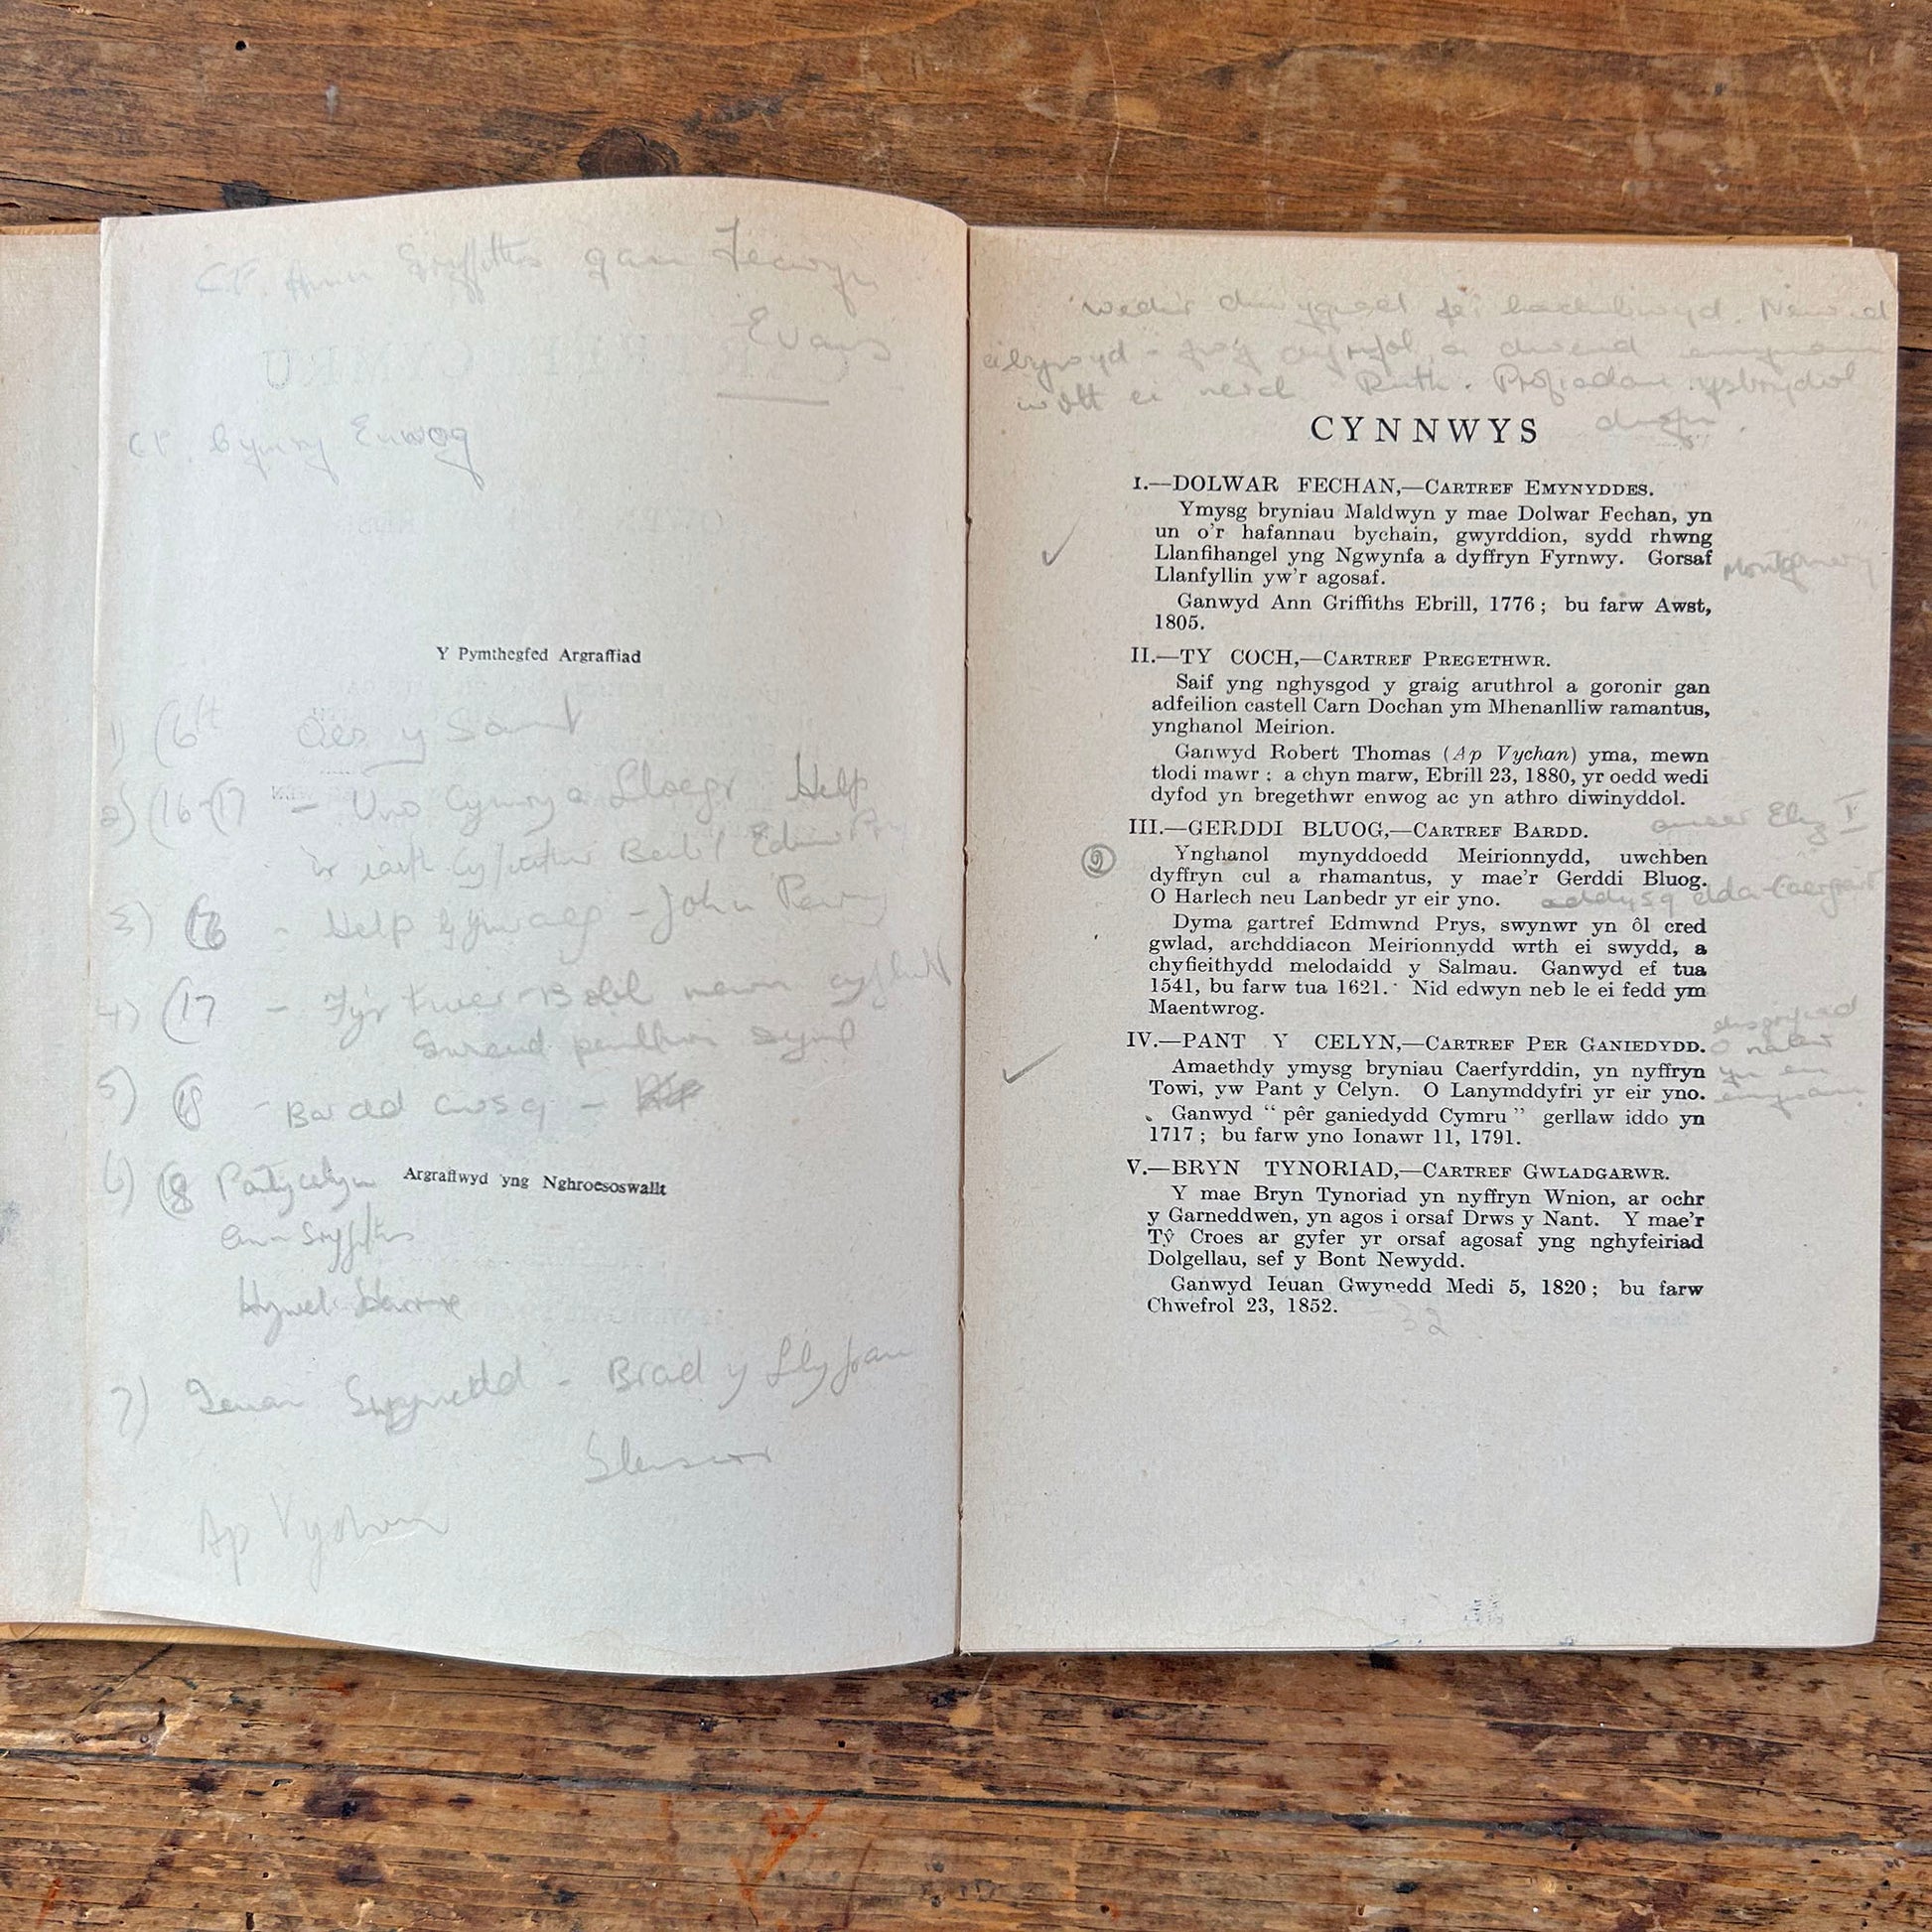 C.F. Ann Griffiths gan
Evans
CF. Cymry Enwog
Y Pymthegfed Argraffiad
1) (6
Oes y Saint
2) (16-17 — Uno Cymry a Lloegr Help
i'r iaith Beibl Edmwnd
3) 16 - Help Gymraeg - John Penry
4) (17 -
penillion syml
5) 18 - Bardd Cwsg -
Argraffwyd yng Nghroesoswallt
6) 18 Pantycelyn
Ann Gryffiths
Hywel Harris
7) Ieuan Gwynedd - Brad y Llyfrau
Gleision
Ap Vychan
wedi'r
a
wrth ei Ruth. Profiadau ysbrydol
CYNNWYS
I.—DOLWAR FECHAN,—CARTREF EMYNYDDES.
Ymysg bryniau Maldwyn y mae Dolwar Fechan, yn
un o'r hafannau bychain, gwyrddion, sydd rhwng
Llanfihangel yng Ngwynfa a dyffryn Fyrnwy. Gorsaf
Llanfyllin yw'r agosaf.
Ganwyd Ann Griffiths Ebrill, 1776; bu farw Awst,
1805.
II.—TY COCH,—CARTREF PREGETHWR.
Saif yng nghysgod y graig aruthrol a goronir gan
adfeilion castell Carn Dochan ym Mhenanlliw ramantus,
ynghanol Meirion.
Ganwyd Robert Thomas (Ap Vychan) yma, mewn
tlodi mawr: a chyn marw, Ebrill 23, 1880, yr oedd wedi
dyfod yn bregethwr enwog ac yn athro diwinyddol.
III.—GERDDI BLUOG,—CARTREF BARDD.
amser Eliz I
Ynghanol mynyddoedd Meirionnydd, uwchben
dyffryn cul a rhamantus, y mae'r Gerddi Bluog.
O Harlech neu Lanbedr yr eir yno.
addysg dda-Caergrawnt
Dyma gartref Edmwnd Prys, swynwr yn ôl cred
gwlad, archddiacon Meirionnydd wrth ei swydd, a
chyfieithydd melodaidd y Salmau. Ganwyd ef tua
1541, bu farw tua 1621. Nid edwyn neb le ei fedd ym
Maentwrog.
IV.—PANT Y CELYN,—CARTREF PER GANIEDYDD.
Amaethdy ymysg bryniau Caerfyrddin, yn nyffryn
Towi, yw Pant y Celyn. O Lanymddyfri yr eir yno.
Ganwyd "pêr ganiedydd Cymru" gerllaw iddo yn
1717; bu farw yno Ionawr 11, 1791.
V.—BRYN TYNORIAD,—CARTREF GWLADGARWR.
Y mae Bryn Tynoriad yn nyffryn Wnion, ar ochr
y Garneddwen, yn agos i orsaf Drws y Nant. Y mae'r
Tŷ Croes ar gyfer yr orsaf agosaf yng nghyfeiriad
Dolgellau, sef y Bont Newydd.
Ganwyd Ieuan Gwynedd Medi 5, 1820; bu farw
Chwefrol 23, 1852.
32